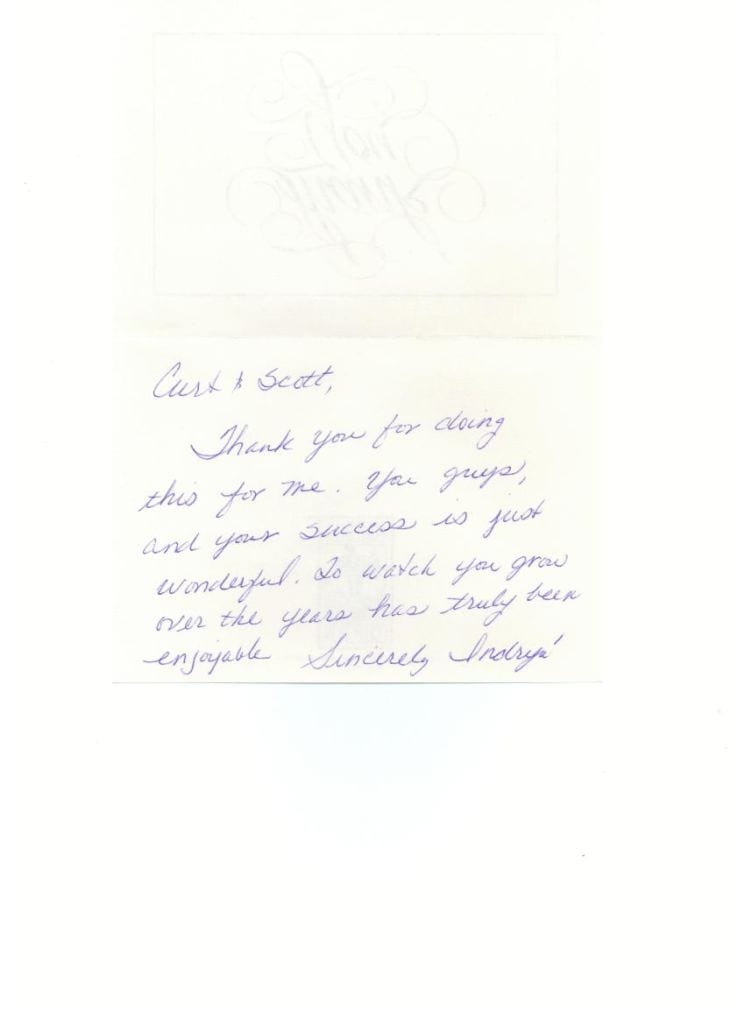 Curt & Scott,
Thank you for doing
this for me. You guys,
and your success is just
wonderful. To watch you grow
over the years has truly been
enjoyable Sincerely